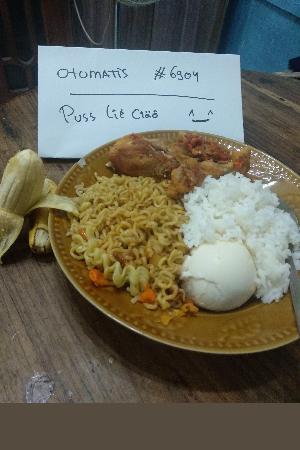 OTOMATIS #6904
Puss Lié Ciöö ^_^